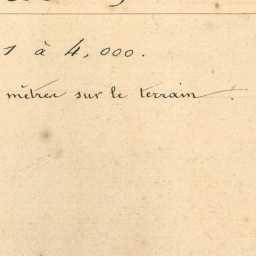 1 à 4,000.
mètres sur le terrain.